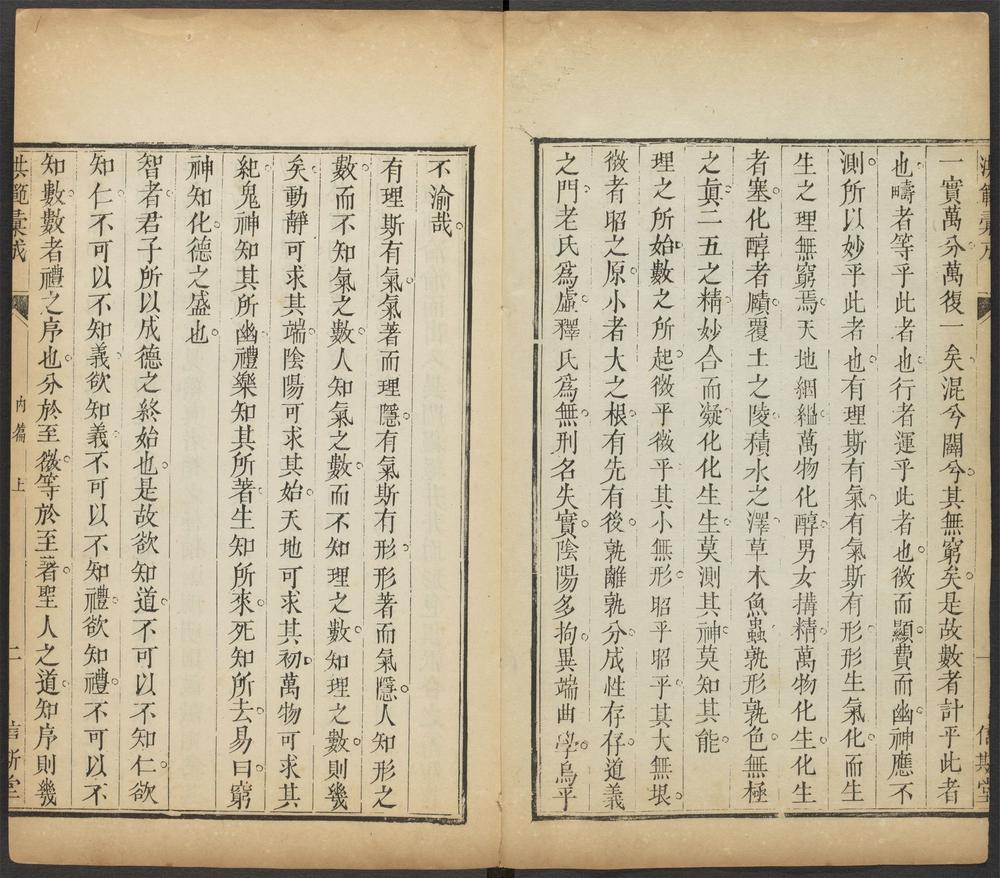 一實萬分萬復一矣混兮闢兮其無窮矣是故數者計乎此者
也疇者等乎此者也行者運乎此者也微而顯費而幽神應不
測所以妙乎此者也有理斯有氣有氣斯有形形生氣化而生
生之理無窮焉天地絪縕萬物化醇男女搆精萬物化生化生
者塞化醇者賾覆土之陵積水之澤草木魚蟲孰形孰色無極
之眞二五之精妙合而凝化化生生莫測其神莫知其能
理之所始數之所起微乎微乎其小無形昭乎昭乎其大無垠
微者昭之原小者大之根有先有後孰離孰分成性存存道義
之門老氏爲虛釋氏爲無刑名失實陰陽多拘異端曲學烏乎
不渝哉
有理斯有氣氣著而理隱有氣斯有形形著而氣隱人知形之
數而不知氣之數人知氣之數而不知理之數知理之數則幾
矣動靜可求其端陰陽可求其始天地可求其初萬物可求其
紀鬼神知其所幽禮樂知其所著生知所來死知所去易曰窮
神知化德之盛也
智者君子所以成德之終始也是故欲知道不可以不知仁欲
知仁不可以不知義欲知義不可以不知禮欲知禮不可以不
知數數者禮之序也分於至微等於至著聖人之道知序則幾
洪範彙成 內篇 上 二 信斯堂